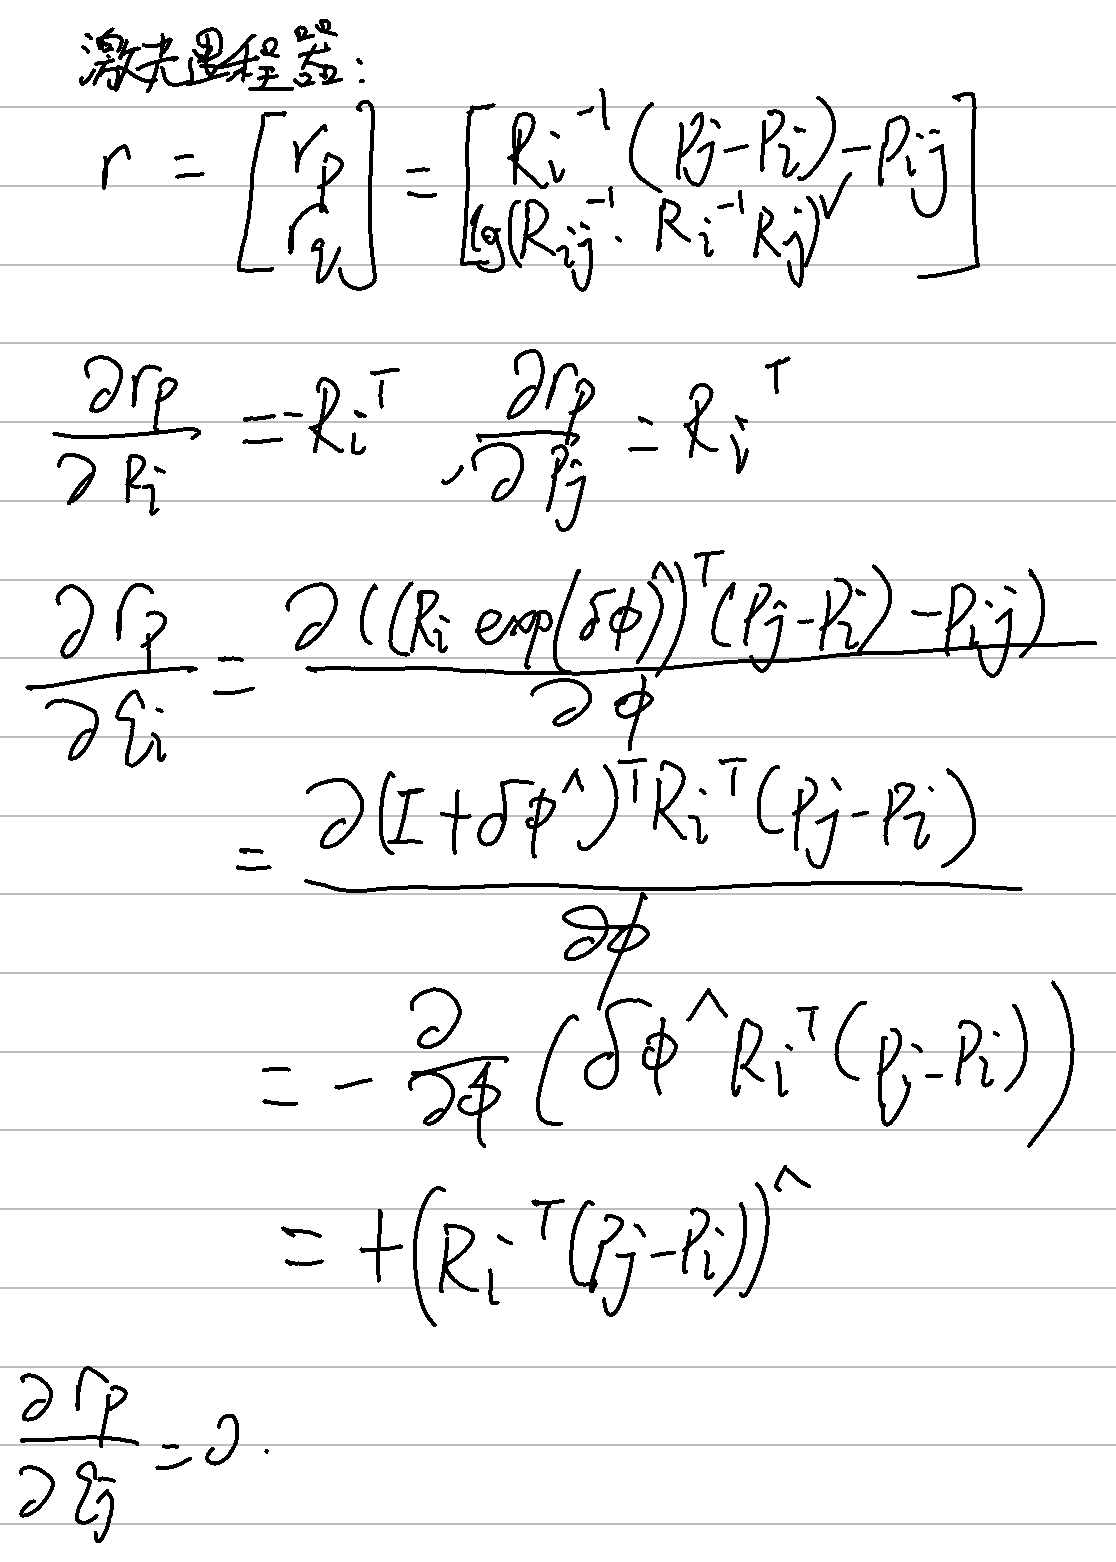 激光里程器:
r = [r_p; r_q] = [R_i^{-1}(P_j-P_i)-P_{ij}; lg(R_{ij}^{-1}·R_i^{-1}R_j)^∨]
∂r_p/∂R_i = -R_i^T , ∂r_p/∂P_j = R_i^T
∂r_p/∂q_i = ∂((R_i exp(δϕ^∧))^T(P_j-P_i)-P_{ij})/∂ϕ
= ∂(I+δϕ^∧)^T R_i^T(P_j-P_i)/∂ϕ
= - ∂/∂ϕ (δϕ^∧ R_i^T(P_j-P_i))
= +(R_i^T(P_j-P_i))^∧
∂r_p/∂q_j = 0.